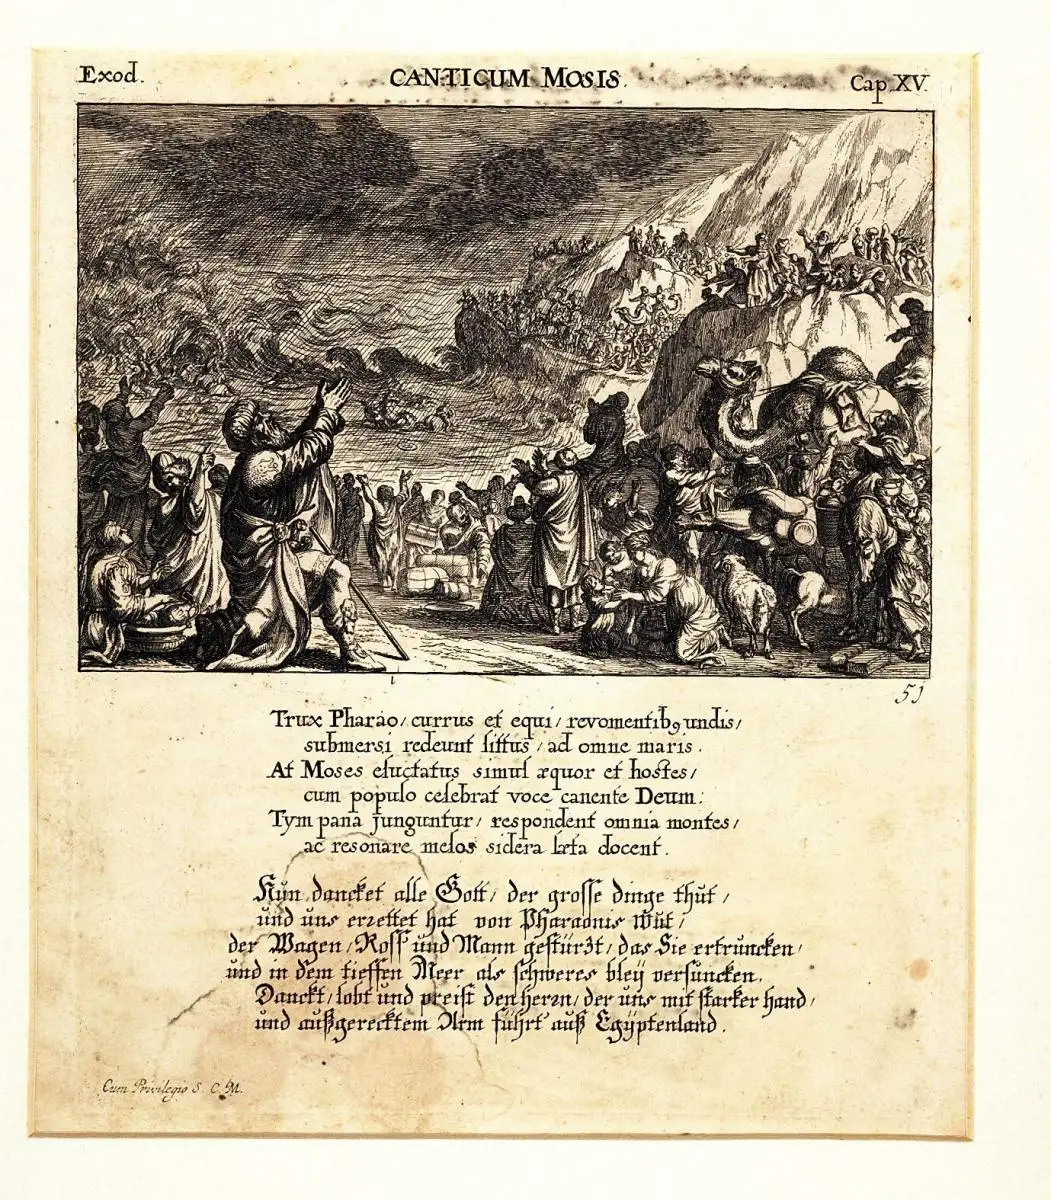 Exod.
CANTICUM MOSIS.
Cap. XV.
51
Trux Pharao/ currus et equi/ revomentibꝫ undis/
submersi redeunt littus/ ad omne maris.
At Moses eluctatus simul æquor et hostes/
cum populo celebrat voce canente Deum:
Tympana junguntur/ respondent omnia montes/
ac resonare melos sidera læta docent.
Nun dancket alle Gott/ der grosse dinge thut/
und uns errettet hat von Pharaonis Wüt/
der Wagen/ Ross und Mann gestürzt/ das Sie ertruncken/
und in dem tieffen Meer als schweres bleÿ versuncken.
Danckt/ lobt und preist den herrn/ der uns mit starker hand/
und außgerecktem Arm führt auß Egÿptenland.
Cum Privilegio S. C. M.